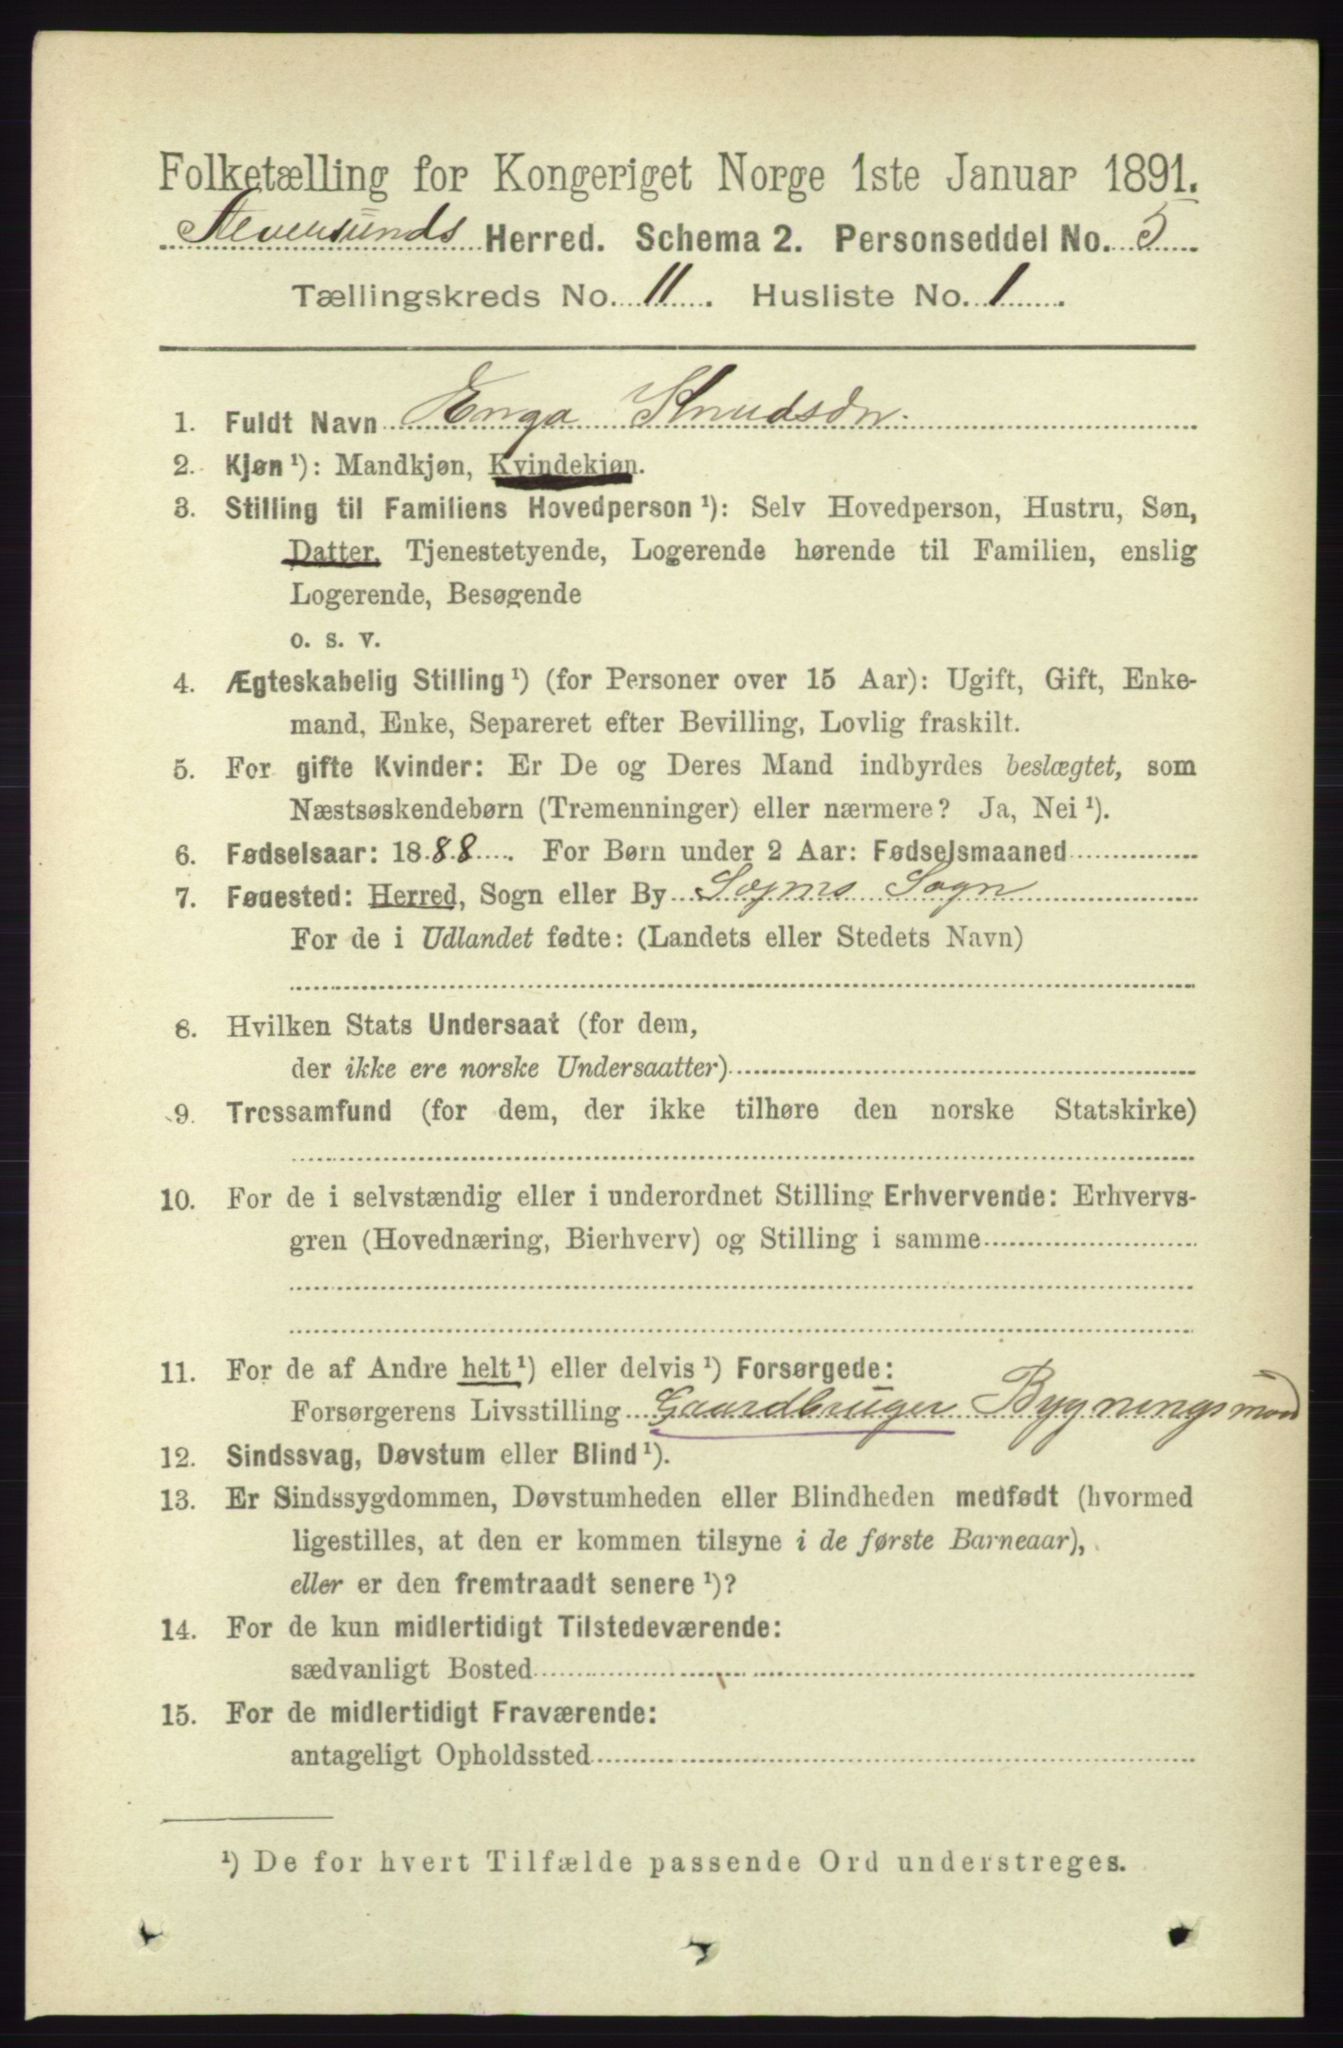 Folketælling for Kongeriget Norge 1ste Januar 1891.
Herred. Schema 2. Personseddel No. 5
Tællingskreds No. 11. Husliste No. 1
1. Fuldt Navn Enga Knudsdr.
2. Kjøn ¹): Mandkjøn, Kvindekjøn.
3. Stilling til Familiens Hovedperson ¹): Selv Hovedperson, Hustru, Søn,
Datter, Tjenestetyende, Logerende hørende til Familien, enslig
Logerende, Besøgende
o. s. v.
4. Ægteskabelig Stilling ¹) (for Personer over 15 Aar): Ugift, Gift, Enke-
mand, Enke, Separeret efter Bevilling, Lovlig fraskilt.
5. For gifte Kvinder: Er De og Deres Mand indbyrdes beslægtet, som
Næstsøskendebørn (Tremenninger) eller nærmere? Ja, Nei ¹).
6. Fødselsaar: 1888. For Børn under 2 Aar: Fødselsmaaned
7. Fødested: Herred, Sogn eller By Sogns Sogn
For de i Udlandet fødte: (Landets eller Stedets Navn)
8. Hvilken Stats Undersaat (for dem,
der ikke ere norske Undersaatter)
9. Trossamfund (for dem, der ikke tilhøre den norske Statskirke)
10. For de i selvstændig eller i underordnet Stilling Erhvervende: Erhvervs-
gren (Hovednæring, Bierhverv) og Stilling i samme
11. For de af Andre helt ¹) eller delvis ¹) Forsørgede:
Forsørgerens Livsstilling Gaardbruger Bygningsmand
12. Sindssvag, Døvstum eller Blind ¹).
13. Er Sindssygdommen, Døvstumheden eller Blindheden medfødt (hvormed
ligestilles, at den er kommen tilsyne i de første Barneaar),
eller er den fremtraadt senere ¹)?
14. For de kun midlertidigt Tilstedeværende:
sædvanligt Bosted
15. For de midlertidigt Fraværende:
antageligt Opholdssted
¹) De for hvert Tilfælde passende Ord understreges.